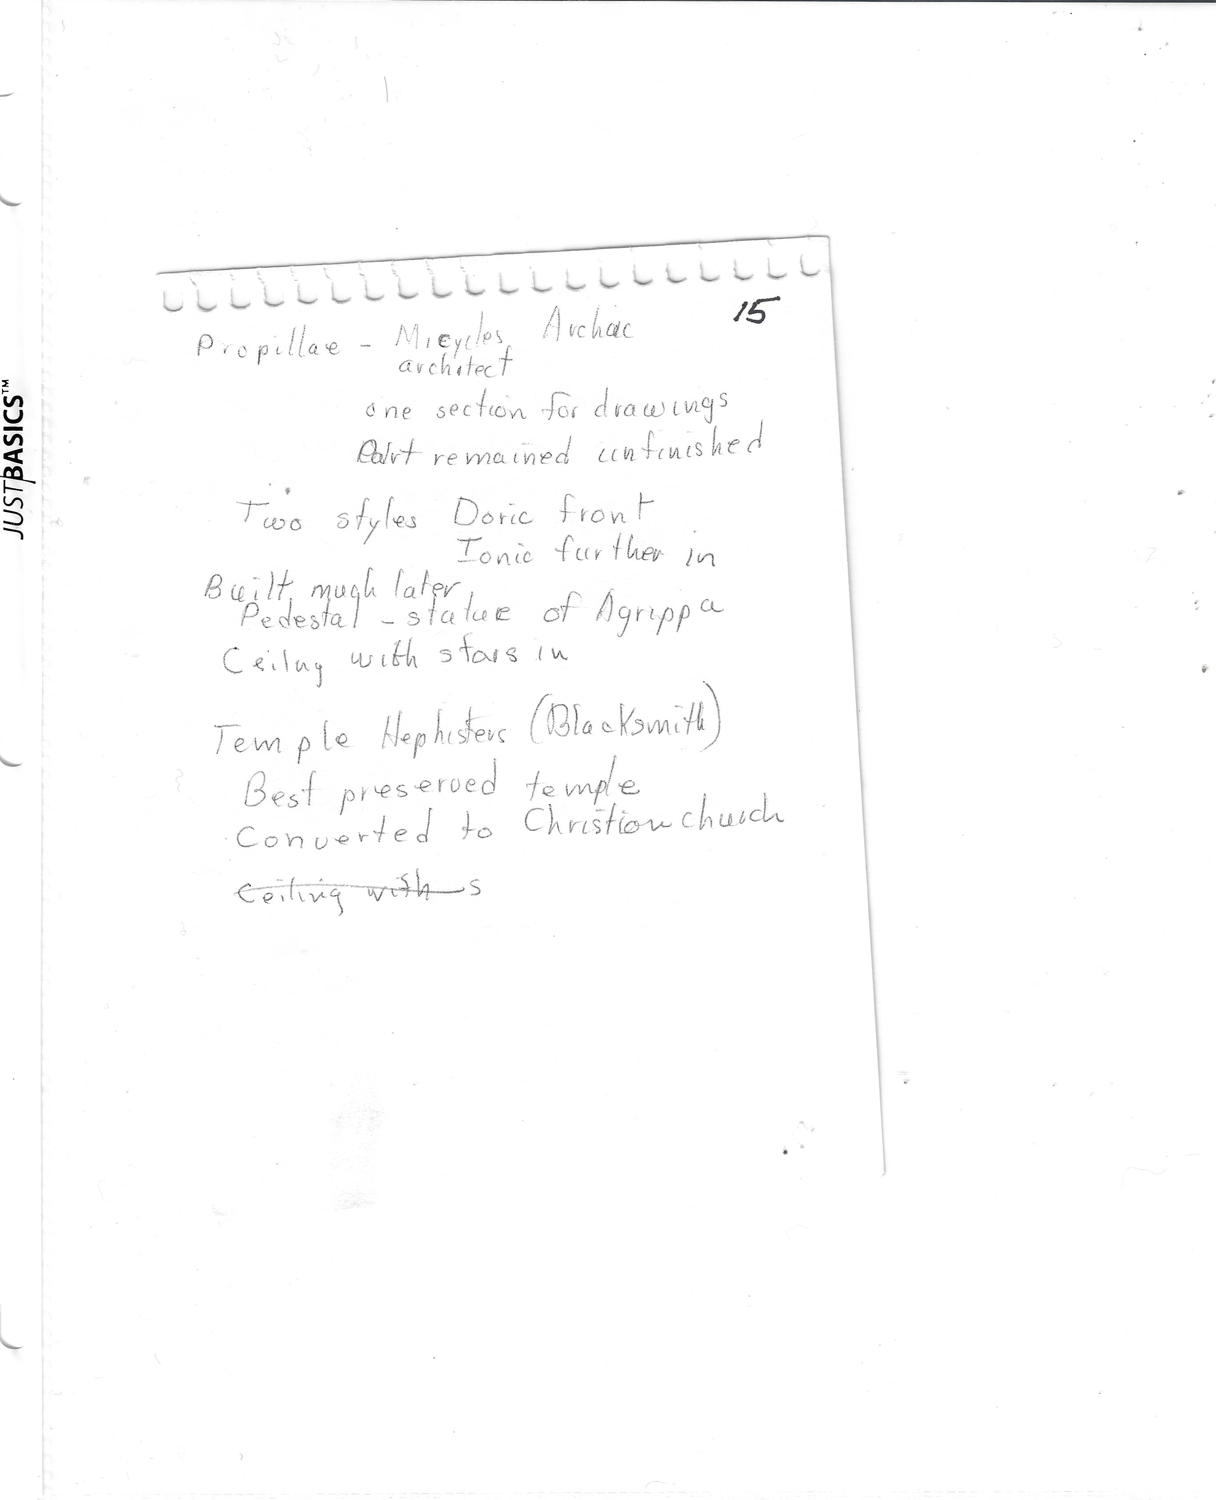 JUSTBASICS™
15
Propillae - Micycles, Archaic
architect
one section for drawings
Part remained unfinished
Two styles Doric front
Ionic further in
Built much later
Pedestal - statue of Agrippa
Ceilng with stars in
Temple Hephisteus (Blacksmith)
Best preserved temple
Converted to Christian church
Ceiling with s